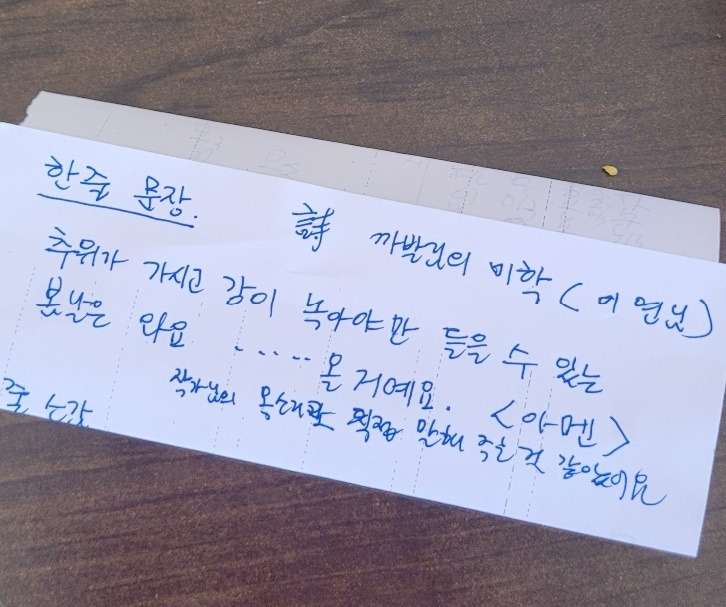 한줄 문장.
詩 까발림의 미학 (이 면님)
추위가 가시고 강이 녹아야만 들을 수 있는
봄날은 와요 ..... 올 거예요. <아멘>
작가님의 목소리로 직접 말해 주는 것 같았어요
줄 소감